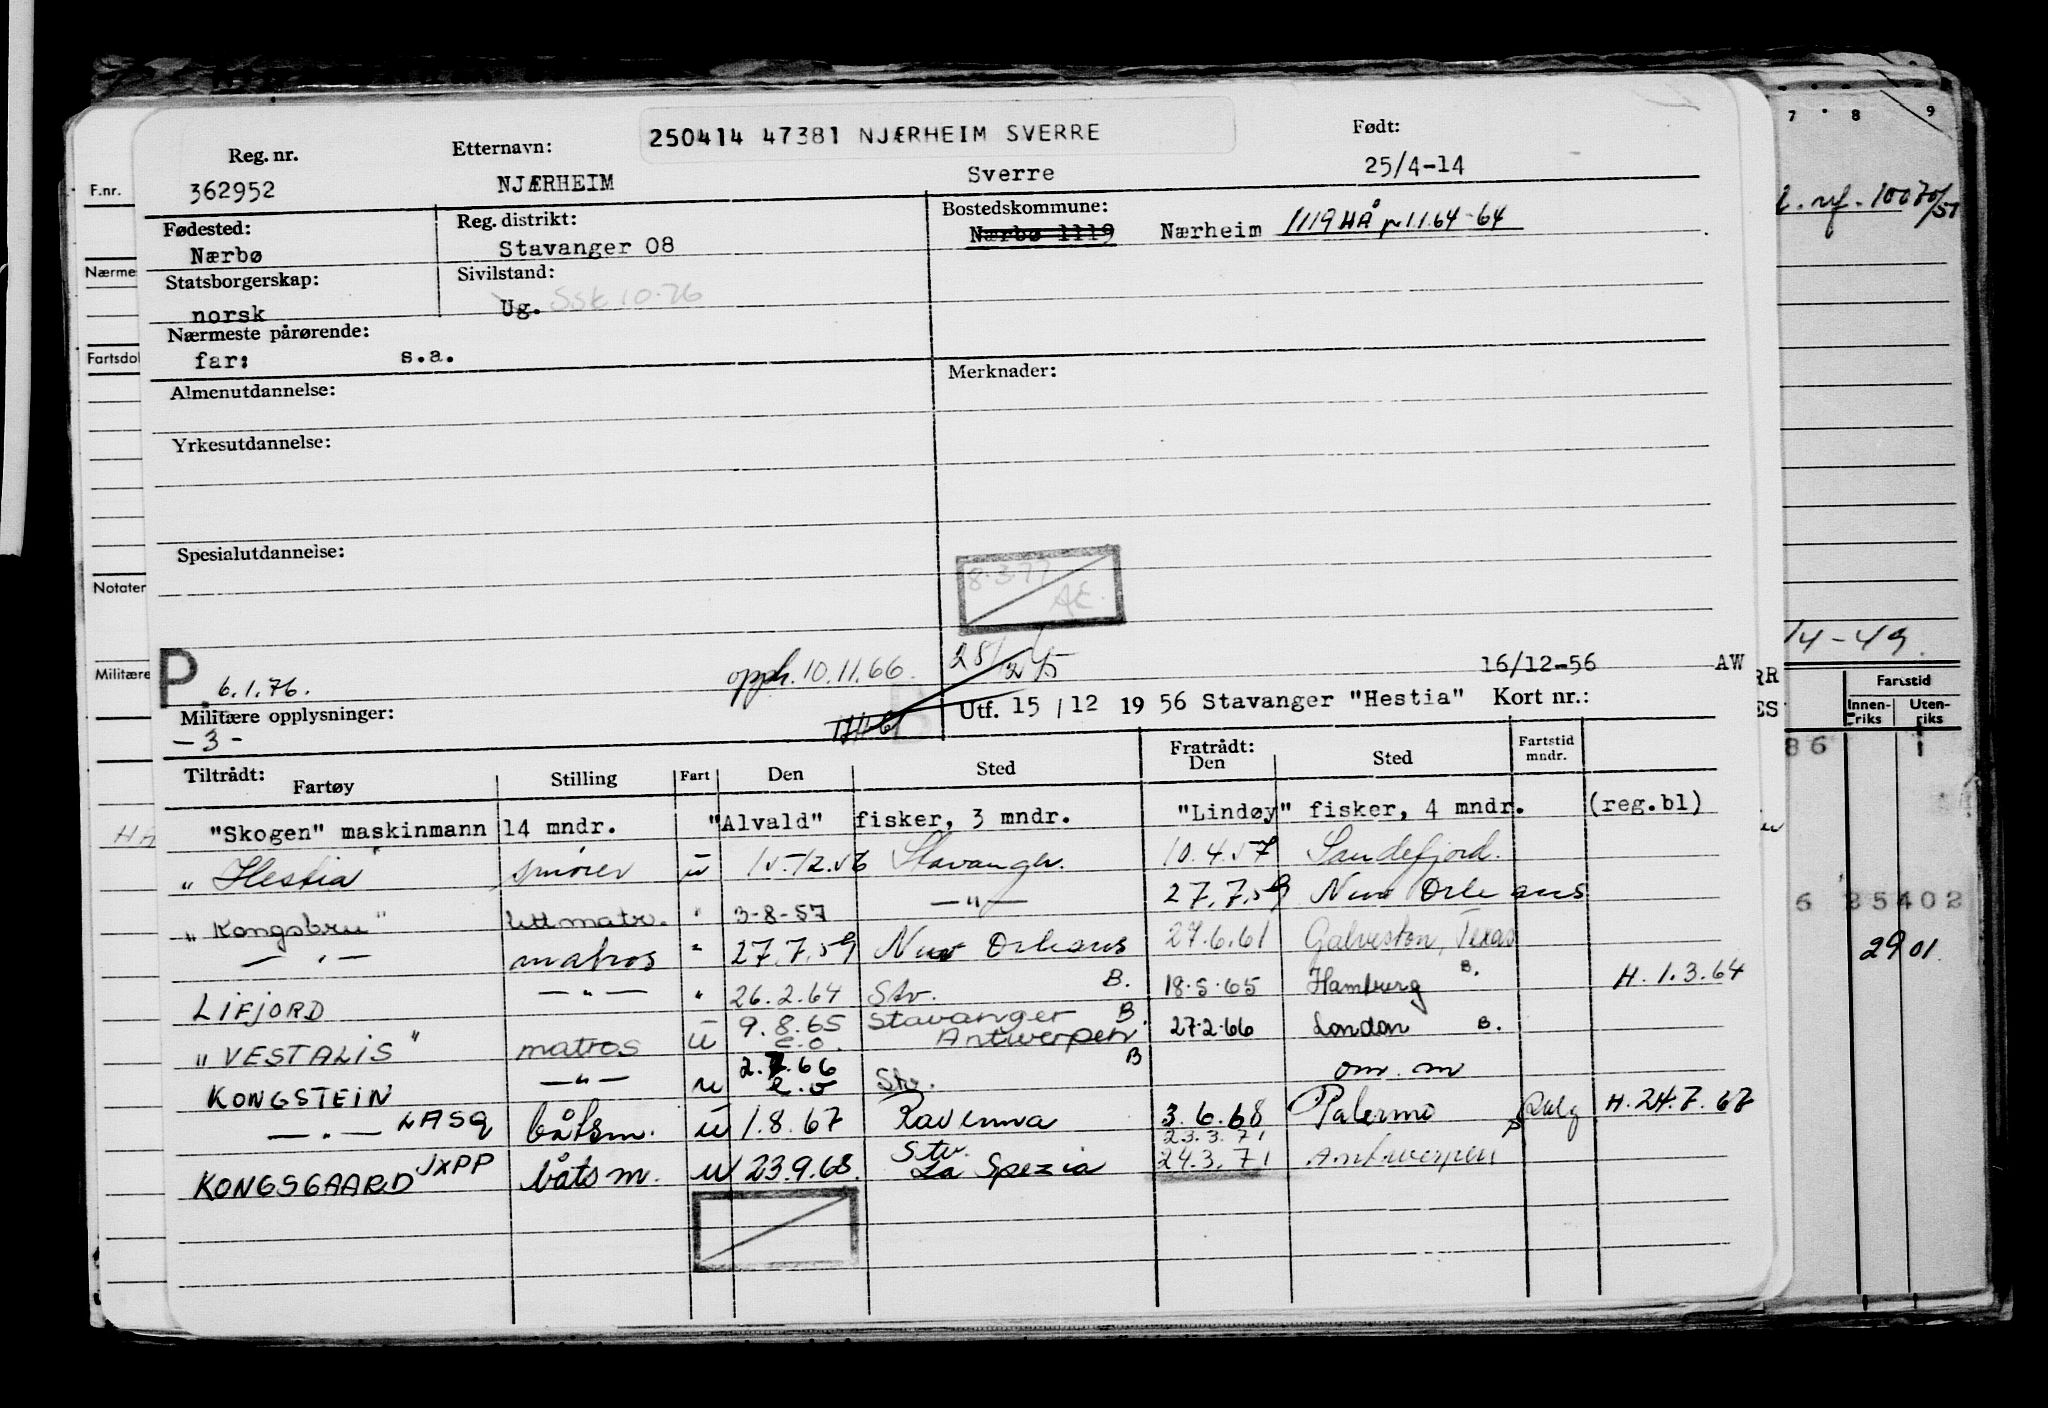 250414 47381 NJÆRHEIM SVERRE
Reg. nr. Etternavn: Født:
362952 NJÆRHEIM Sverre 25/4-14
Fødested: Reg. distrikt: Bostedskommune:
Nærbø Stavanger 08 Nærbø 1119 Nærheim 1119 HÅ pr 1.1.64-64
Statsborgerskap: Sivilstand:
norsk Ug. SSK 10.76
Nærmeste pårørende:
far: s.a.
Almenutdannelse: Merknader:
Yrkesutdannelse:
Spesialutdannelse:
8.3.77
AE.
P. 6.1.76. opph. 10.11.66 16/12-56 AW
Militære opplysninger: Utf. 15/12 1956 Stavanger "Hestia" Kort nr.:
-3-
Tiltrådt: Fartøy Stilling Fart Den Sted Fratrådt: Den Sted Fartstid mndr.
"Skogen" maskinmann 14 mndr. "Alvald" fisker, 3 mndr. "Lindøy" fisker, 4 mndr. (reg.bl)
"Hestia" smører u 15.12.56 Stavanger. 10.4.57 Sandefjord.
"Kongsbru" lettmatr. " 3-8-57 —"— 27.7.59 New Orleans
—"— matros " 27.7.59 New Orleans 27.6.61 Galveston, Texas
LIFJORD —"— " 26.2.64 Stv. B. 18.5.65 Hamburg B. H.1.3.64
"VESTALIS" matros u 9.8.65 e.o. Stavanger B Antwerpen 27.2.66 London B.
KONGSTEIN —"— u 2.7.66 e.o Stv. B om. m
—"— LASQ båtsm. u 1.8.67 Ravenna 3.6.68 Palermo H.24.7.67
KONGSGAARD JXPP båtsm. u 23.9.68. Stv. La Spezia 23.3.71 24.3.71 Antwerpen
F.nr.
Nærmes
Fartsdol
Notater
Militære
HA
7 8 9
10070/51
14-49.
RR
ES
Fartstid
Innen-riks Uten-riks
86 1
6 25402
2901.